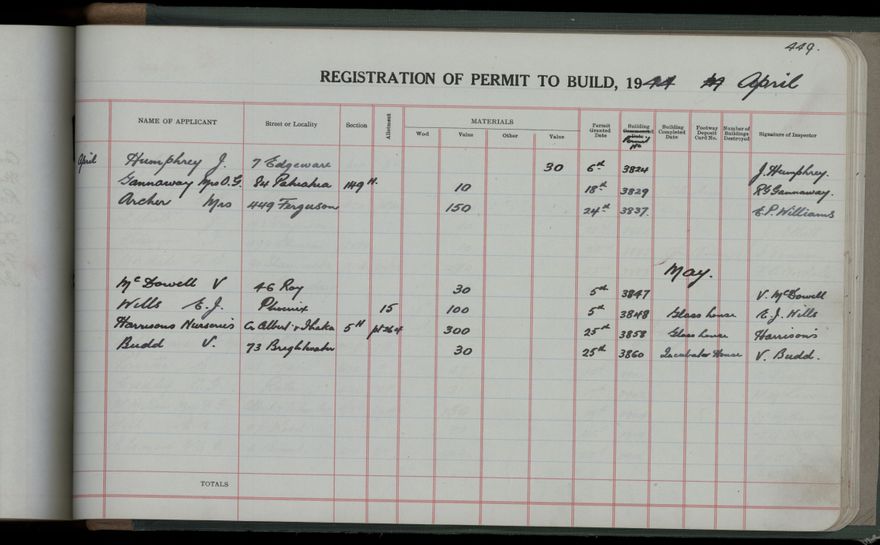 449.
REGISTRATION OF PERMIT TO BUILD, 1944 April
NAME OF APPLICANT Street or Locality Section Allotment MATERIALS Permit Granted Date Building Commenced Date Permit No Building Completed Date Footway Deposit Card No. Number of Buildings Destroyed Signature of Inspector
Wod Value Other Value
April Humphrey J. 7 Edgeware 30 6th 3824 J. Humphrey.
Gannaway Mrs O.G. 84 Pahiatua 1149 10 18th 3829 RG Gannaway.
Archer Mrs 449 Ferguson 150 24th 3837 E.P. Williams
May.
McDowell V 46 Roy 30 5th 3847 V. McDowell
Wills E.J. Phoenix 15 100 5th 3848 Glass house E.J. Wills
Harrisons Nurseries Cr Albert & Ihaka 5H pt 264 300 25th 3858 Glass house Harrison's
Budd V. 73 Brightwater 30 25th 3860 Incubator House V. Budd.
TOTALS